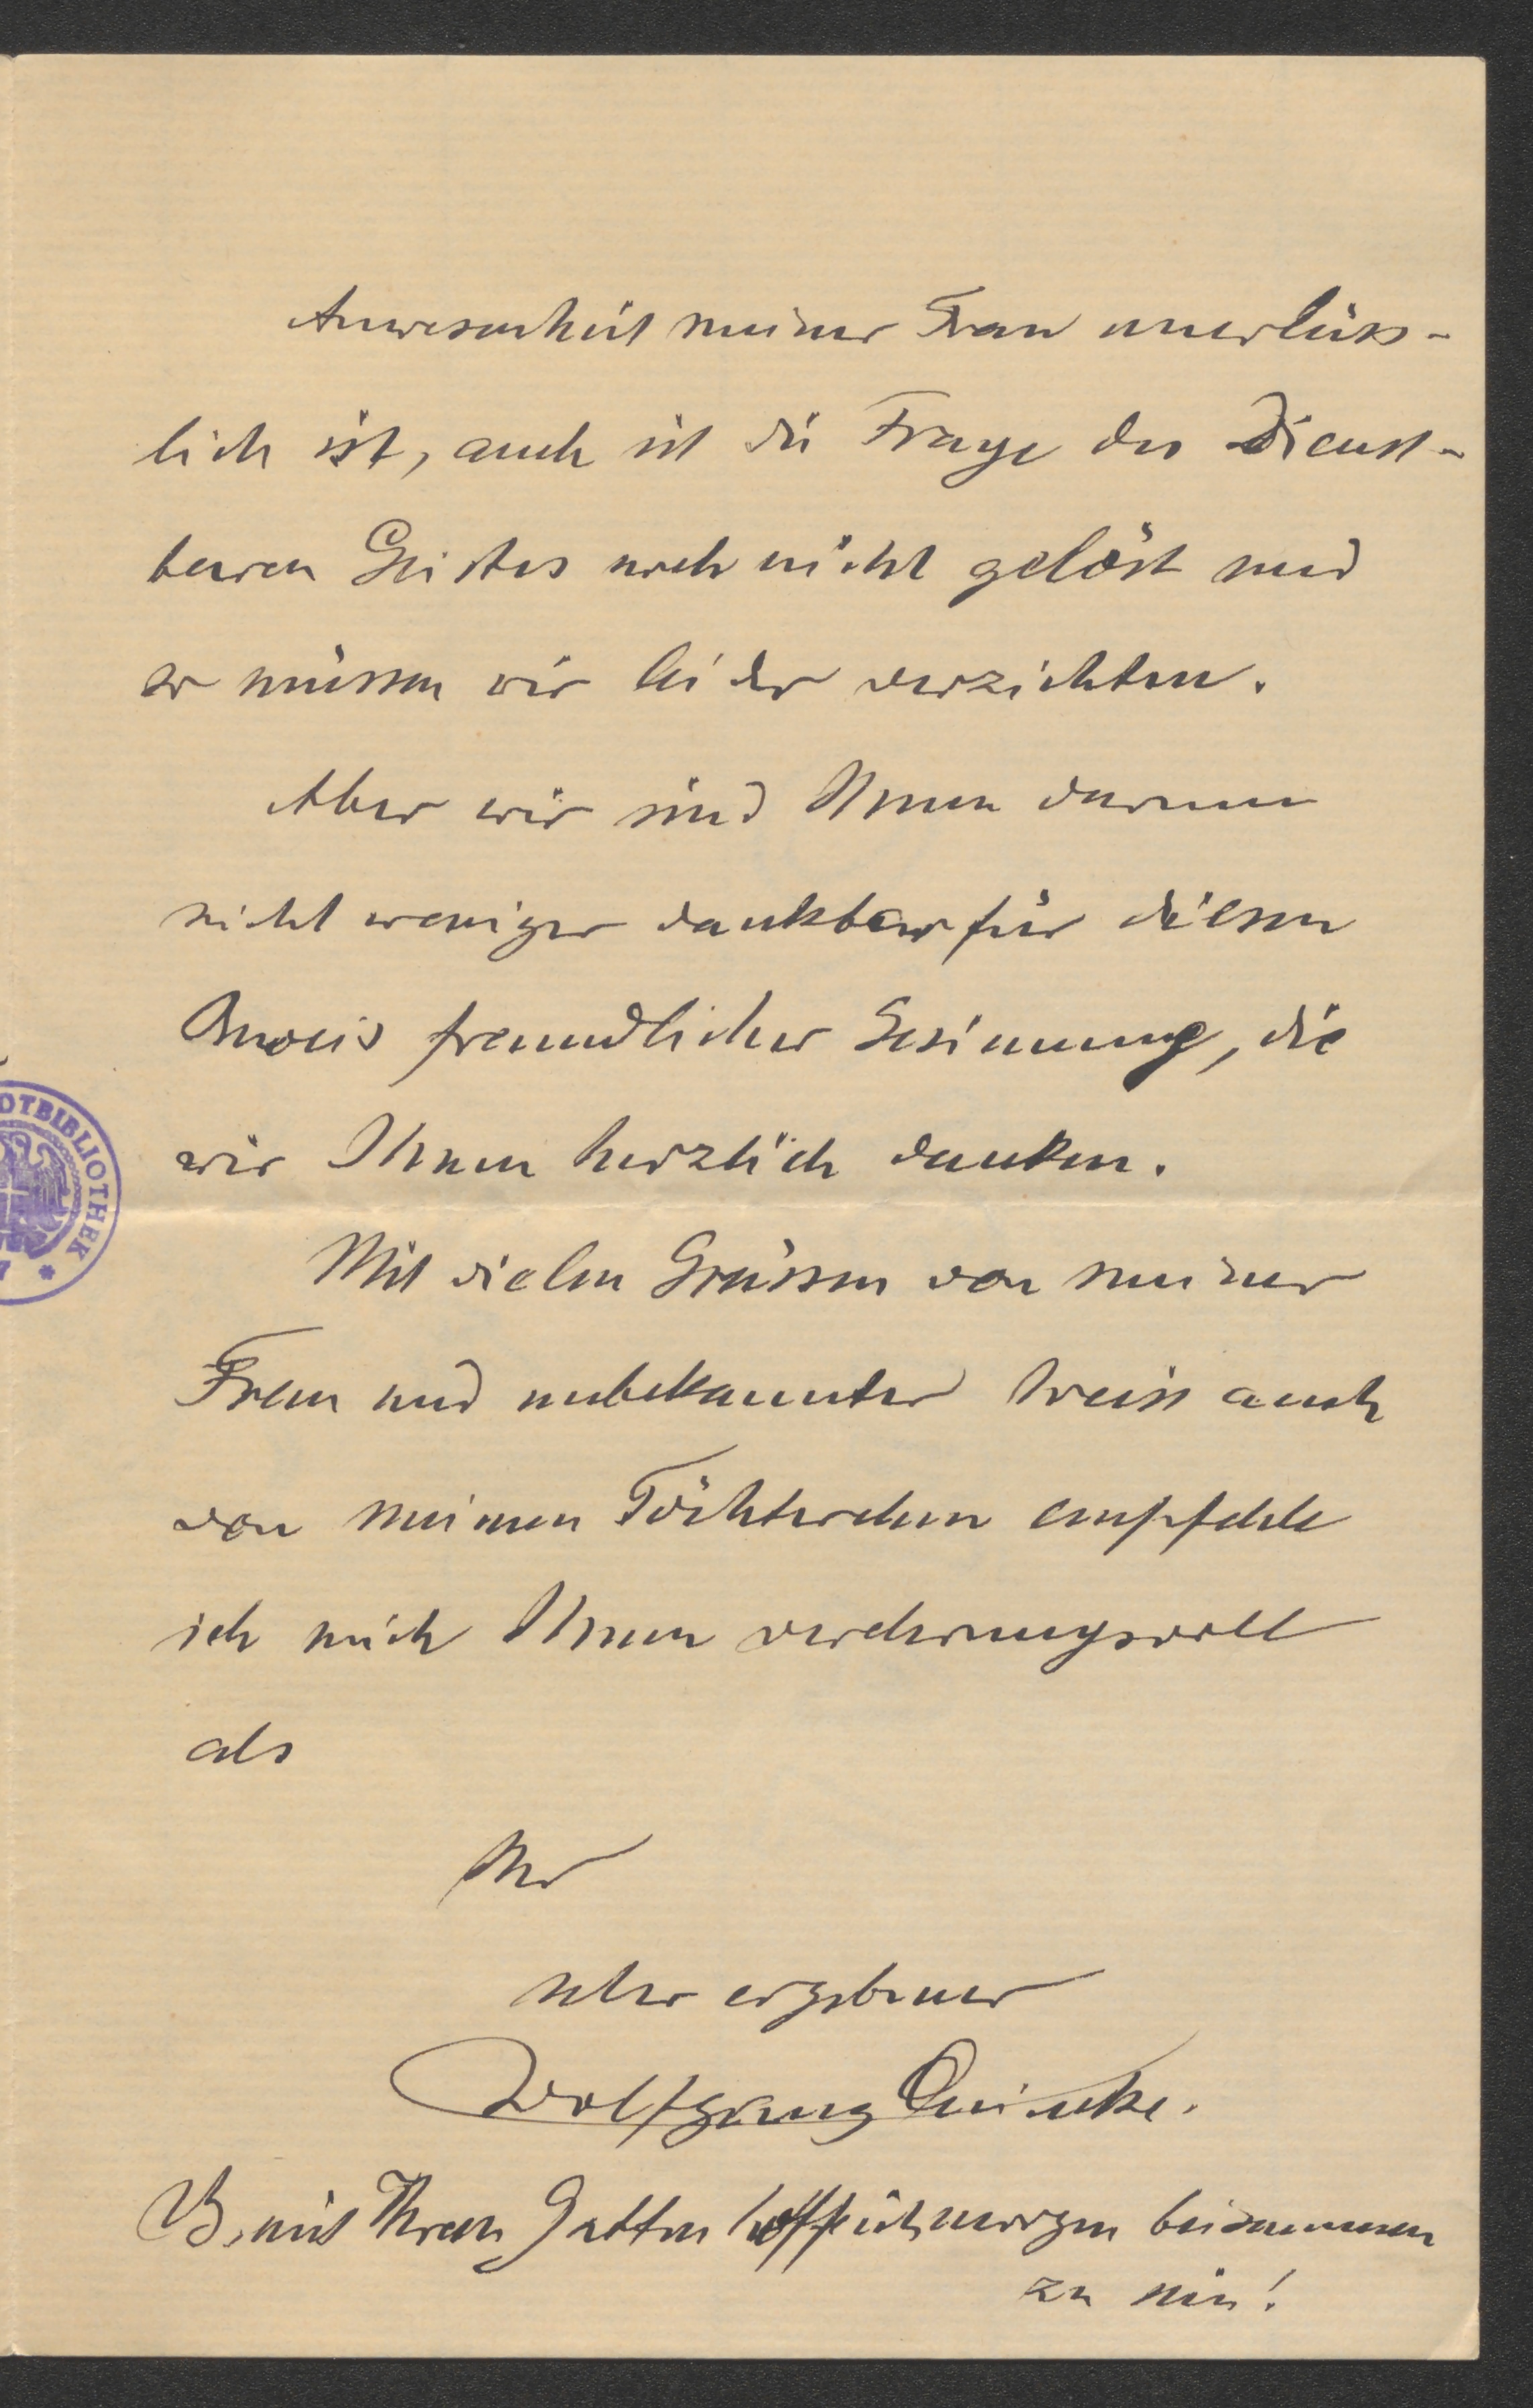 Anwesenheit meiner Frau unerläss-
lich ist, auch ist die Frage des Dienst-
baren Geistes noch nicht gelöst und
so müssen wir leider verzichten.
Aber wir sind Ihnen darum
nicht weniger dankbar für diesen
Beweis freundlicher Gesinnung, die
wir Ihnen herzlich danken.
Mit vielen Grüssen von meiner
Frau und unbekannter Weise auch
von meinen Töchterchen empfehle
ich mich Ihnen verehrungsvoll
als
Ihr
sehr ergebener
Wolfgang Quincke.
mit Ihrem Gatten hoffe ich morgen beisammen
zu sein!
OTBIBLIOTHEK *